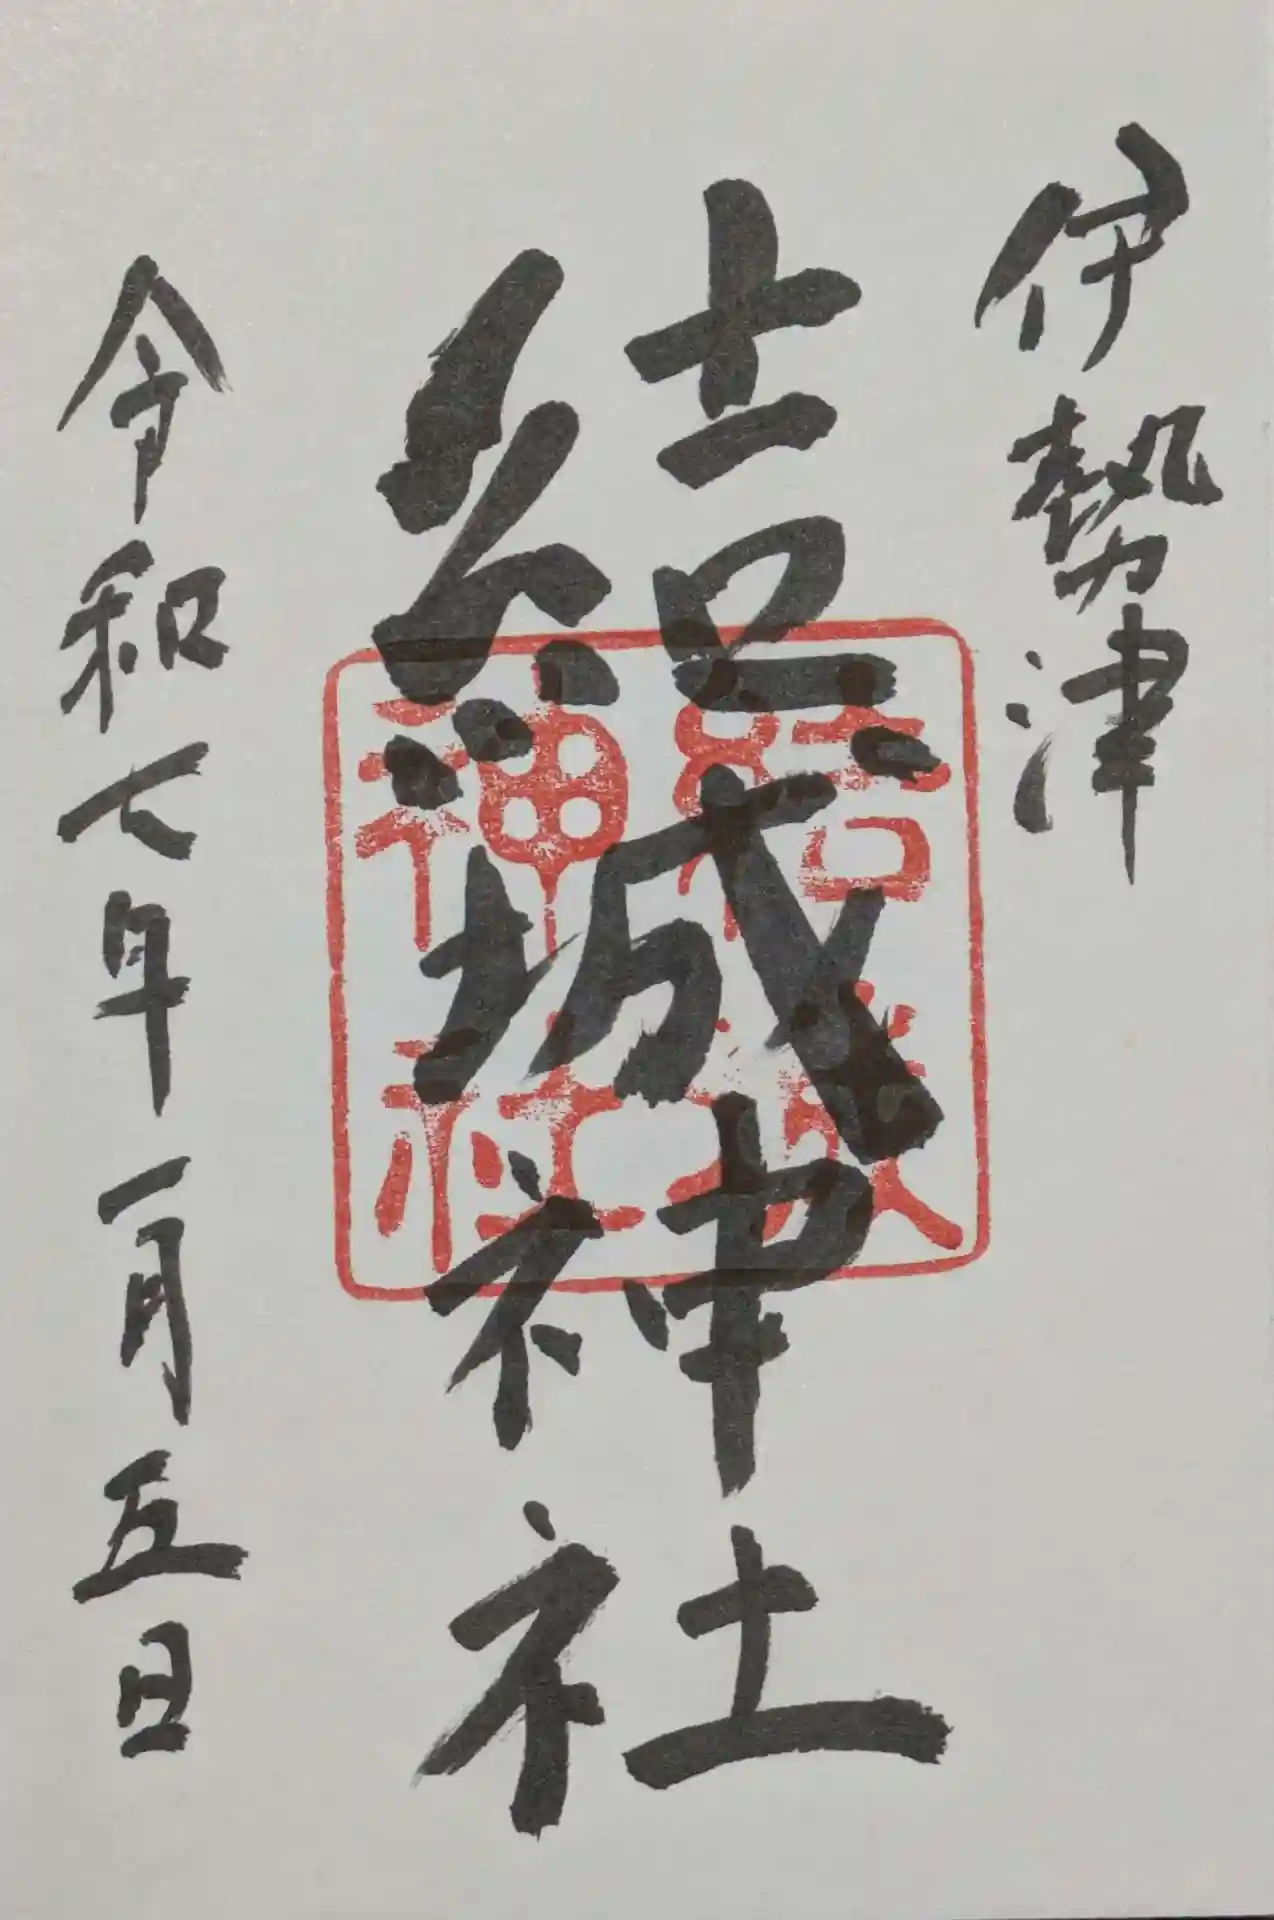 伊勢津
結城神社
結城神社
令和七年一月五日